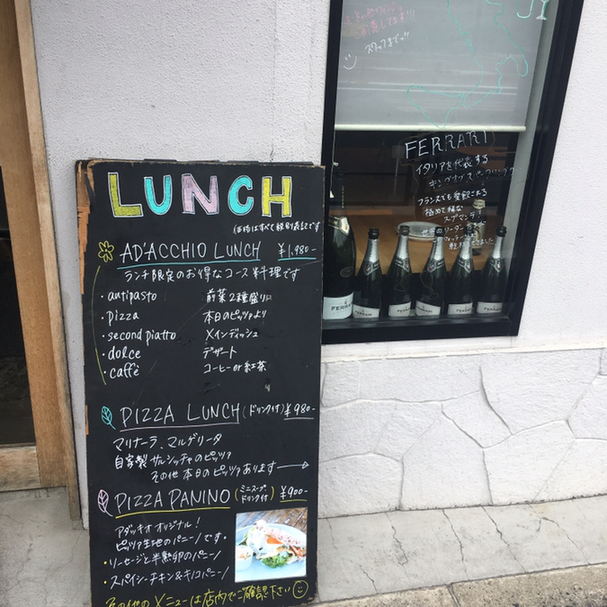 LUNCH
AD'ACCHIO LUNCH ¥1,980-
ランチ限定のお得なコース料理です
・antipasto 前菜2種盛り
・pizza 本日のピッツァより
・second piatto メインディッシュ
・dolce デザート
・caffè コーヒー or 紅茶
PIZZA LUNCH (ドリンク付) ¥980-
マリナーラ、マルゲリータ
自家製サルシッチャのピッツァ
その他本日のピッツァあります→
PIZZA PANINO (ミニスープ ドリンク付) ¥900-
アダッキオオリジナル!
ピッツァ生地のパニーノです・
・ソーセージと半熟卵のパニーノ
・スパイシーチキン&キノコパニーノ
その他のメニューは店内でご確認下さい
JY
スタッフまで
FERRARI
イタリアを代表する
フランスでも愛飲される
極めて稀な
スプマンテ!
FERRARI